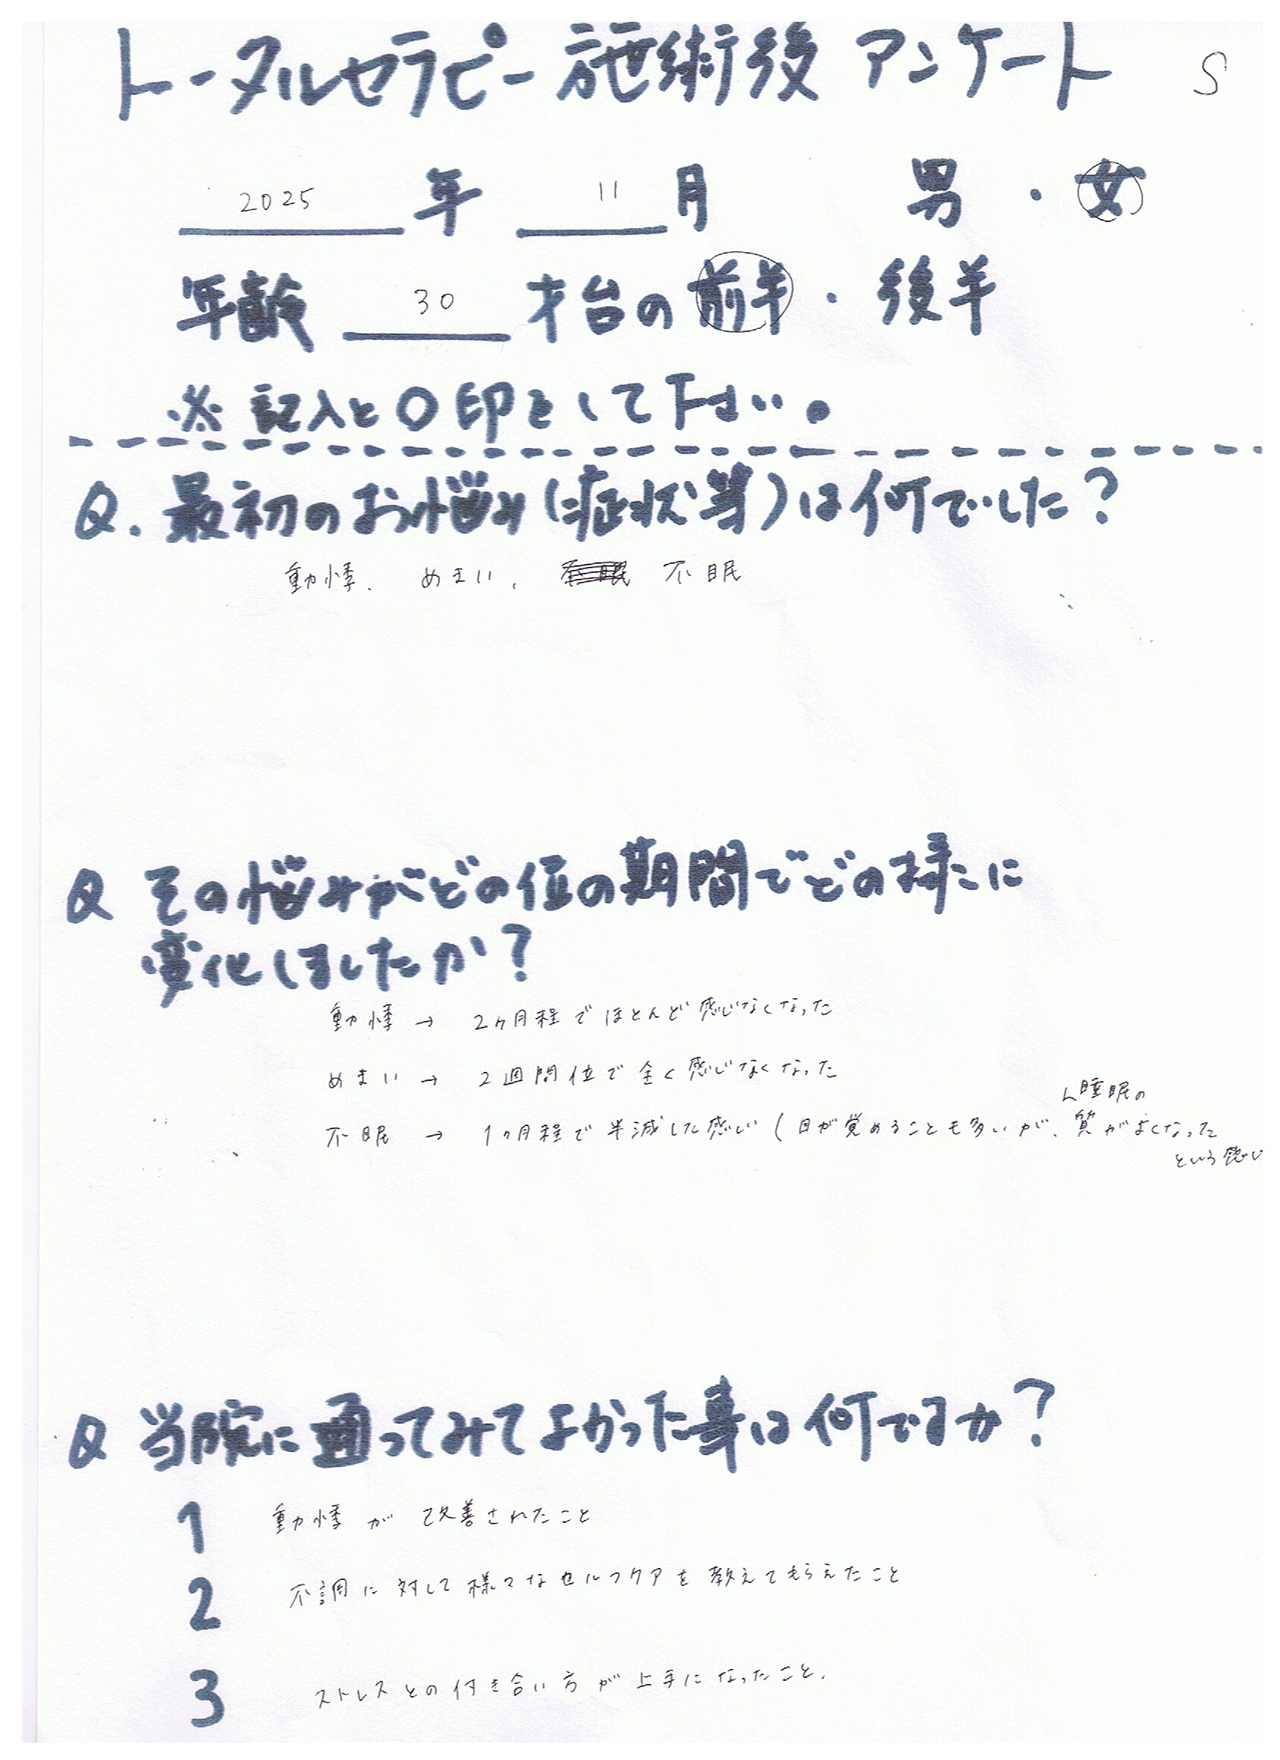 トータルセラピー施術後 アンケート S
2025 年 11 月 男 ・ 女
年齢 30 才台の 前半 ・ 後半
※ 記入と○印をして下さい。
Q. 最初のお悩み(症状等)は何でしたか?
動悸、めまい、不眠
Q その悩みがどの位の期間でどの様に
変化しましたか?
動悸 → 2ヶ月程でほとんど感じなくなった
めまい → 2週間位で全く感じなくなった
睡眠の
不眠 → 1ヶ月程で半減した感じ (目が覚めることも多いが、質がよくなった
という感じ
Q 当院に通ってみてよかった事は何ですか?
1 動悸が改善されたこと
2 不調に対して様々なセルフケアを教えてもらえたこと
3 ストレスとの付き合い方が上手になったこと。